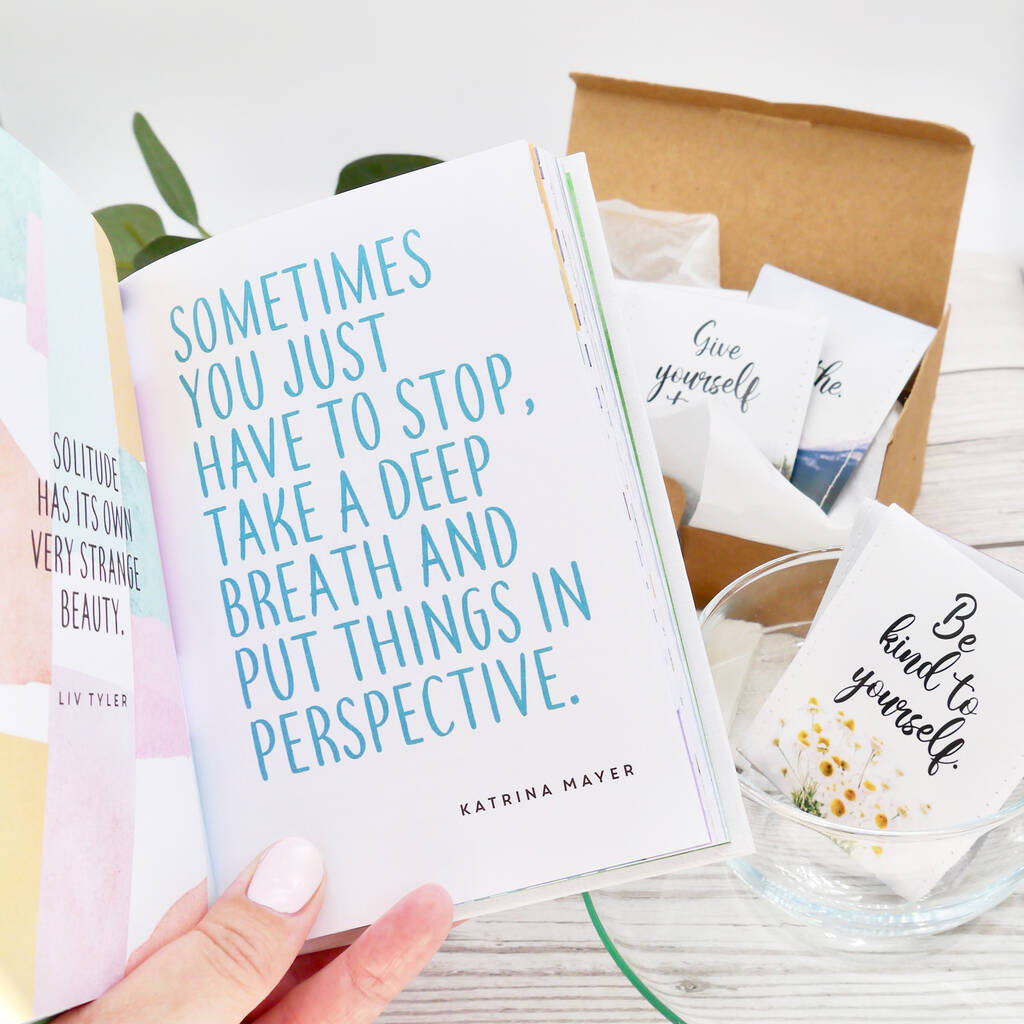 SOLITUDE
HAS ITS OWN
VERY STRANGE
BEAUTY.
LIV TYLER
SOMETIMES
YOU JUST
HAVE TO STOP,
TAKE A DEEP
BREATH AND
PUT THINGS IN
PERSPECTIVE.
KATRINA MAYER
Give
yourself
Be
kind to
yourself.